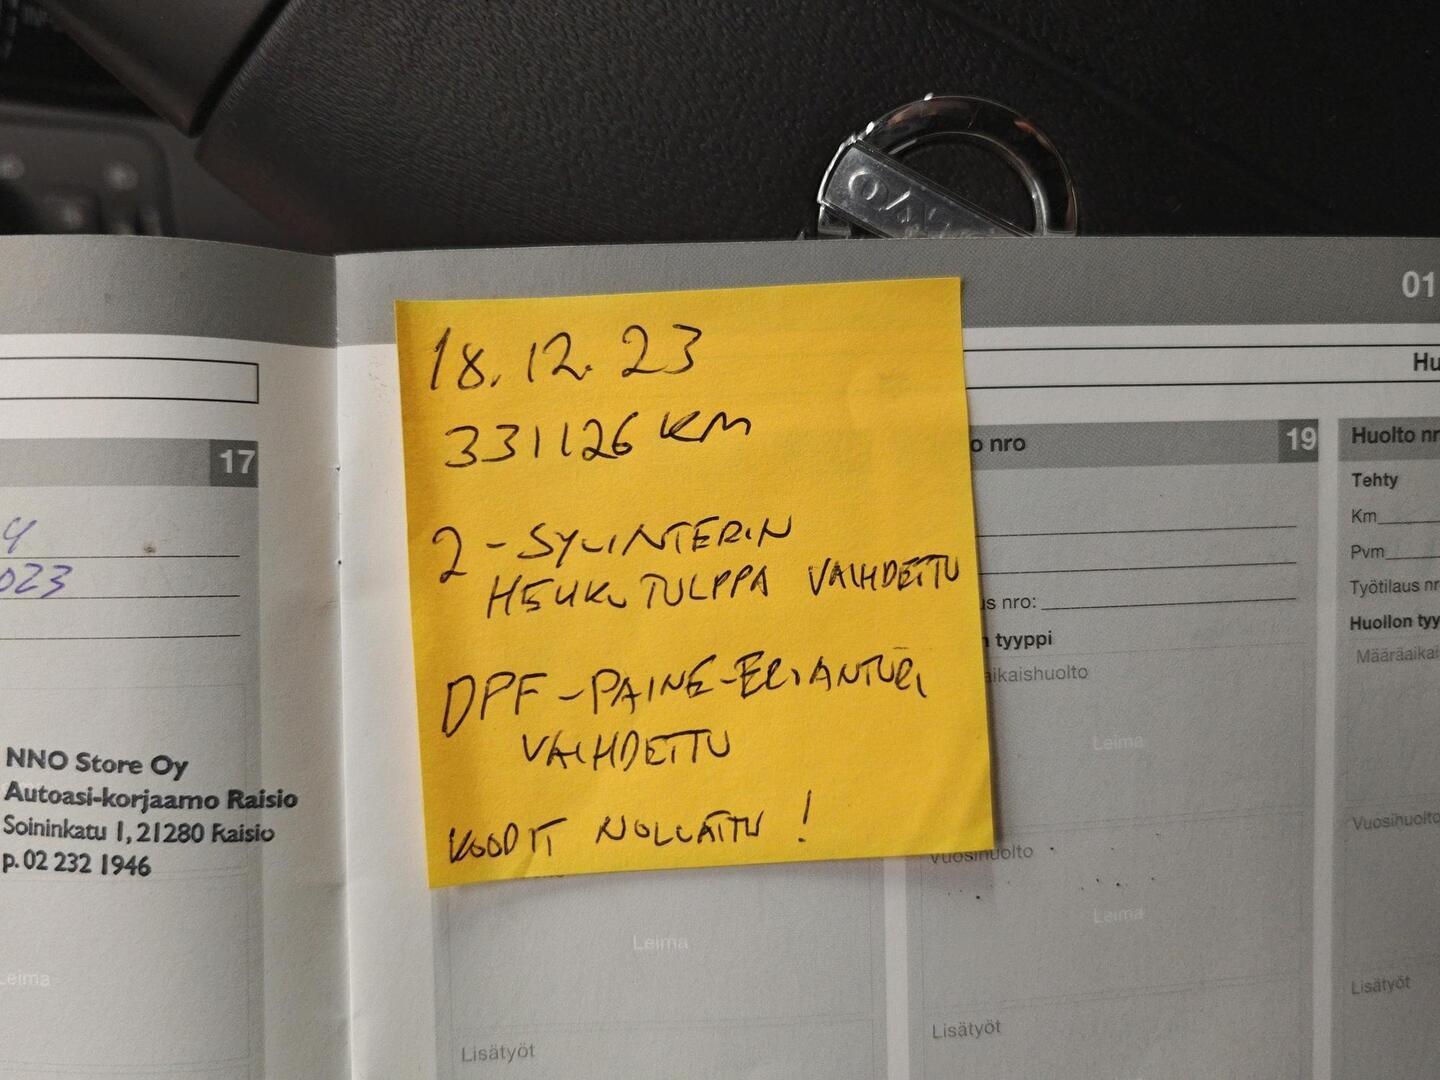 VOLVO
01
Hu
17
4
023
NNO Store Oy
Autoasi-korjaamo Raisio
Soininkatu 1, 21280 Raisio
p. 02 232 1946
Leima
18.12.23
331126 KM
2-SYLINTERIN
HEHKUTULPPA VAIHDETTU
DPF-PAINE-EROANTURI
VAIHDETTU
KOODIT NOLLATTU!
Leima
Lisätyöt
o nro
19
us nro:
n tyyppi
aikaishuolto
Leima
Vuosihuolto
Leima
Lisätyöt
Huolto nr
Tehty
Km
Pvm
Työtilaus nr
Huollon tyy
Määräaikai
Vuosihuolto
Lisätyöt